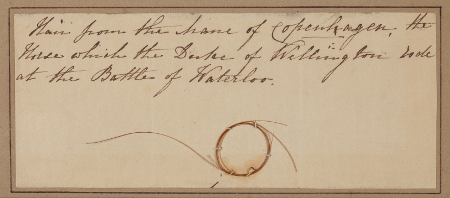 Hair from the mane of Copenhagen, the
Horse which the Duke of Wellington rode
at the Battle of Waterloo.